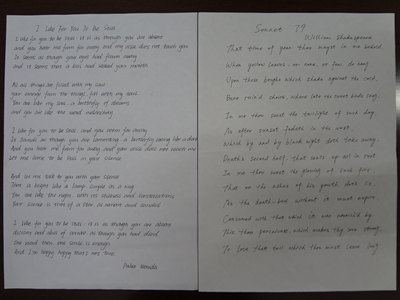 I Like For You To Be Still
I like for you to be still: it is as though you are absent
and you hear me from far away and my voice does not touch you
It seems as though your eyes had flown away
and it seems that a kiss had sealed your mouth
As all things are filled with my soul
you emerge from the things, fill with my soul
You are like my soul, a butterfly of dreams
and you are like the word melancholy
I like for you to be still, and you seem far away
It sounds as though you are lamenting, a butterfly cooing like a dove
And you hear me from far away and my voice does not reach me
Let me come to be still in your silence
And let me talk to you with your silence
That is bright like a lamp, simple as a ring
You are like the night, with its stillness and constellations
Your silence is that of a star, as remote and candid
I like for you to be still: it is as though you are absent
distant and full of sorrow, as though you had died
One word then, one smile is enough
And I'm happy, happy that's not true
Pablo Neruda
Sonnet 79
William Shakespeare
That time of year thou mayst in me behold
When yellow leaves, or none, or few, do hang
Upon those boughs which shake against the cold,
Bare ruin'd choirs, where late the sweet birds sang.
In me thou seest the twilight of such day
As after sunset fadeth in the west
Which by and by black night doth take away
Death's second self, that seals up all in rest
In me thou seest the glowing of such fire
That on the ashes of his youth doth lie
As the death-bed whereon it must expire
Consumed with that which it was nourish'd by
This thou perceivest, which makes thy love strong,
To love that well which thou must leave long